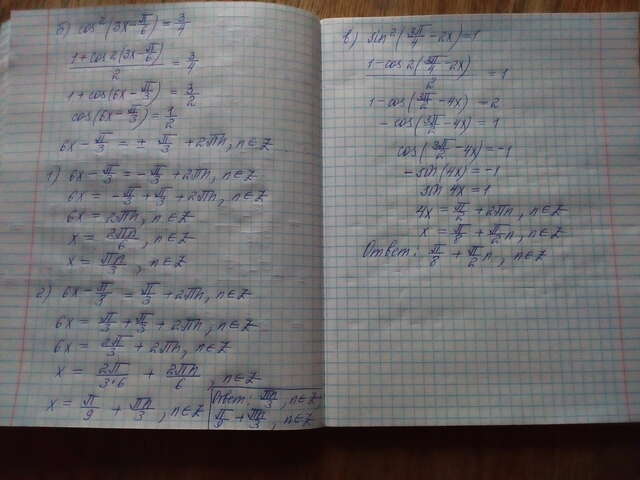 б) cos²(3x - π/6) = 3/4
(1 + cos2(3x - π/6))/2 = 3/4
1 + cos(6x - π/3) = 3/2
cos(6x - π/3) = 1/2
6x - π/3 = ± π/3 + 2πn, n∈Z
1) 6x - π/3 = -π/3 + 2πn, n∈Z
6x = -π/3 + π/3 + 2πn, n∈Z
6x = 2πn, n∈Z
x = 2πn/6, n∈Z
x = πn/3, n∈Z
2) 6x - π/3 = π/3 + 2πn, n∈Z
6x = π/3 + π/3 + 2πn, n∈Z
6x = 2π/3 + 2πn, n∈Z
x = 2π/3·6 + 2πn/6, n∈Z
x = π/9 + πn/3, n∈Z
Ответ: πn/3, n∈Z
π/9 + πn/3, n∈Z
в) sin²(3π/4 - 2x) = 1
(1 - cos2(3π/4 - 2x))/2 = 1
1 - cos(3π/2 - 4x) = 2
- cos(3π/2 - 4x) = 1
cos(3π/2 - 4x) = -1
- sin(4x) = -1
sin 4x = 1
4x = π/2 + 2πn, n∈Z
x = π/8 + π/2 n, n∈Z
Ответ: π/8 + π/2 n, n∈Z